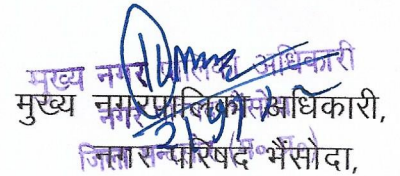 मुख्य नगर पालिका अधिकारी
मुख्य नगरपालिका अधिकारी,
नगर
नगर परिषद भैसौदा,
जिला